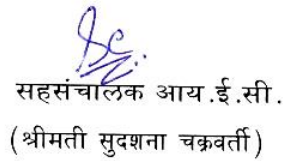 सहसंचालक आय.ई.सी.
(श्रीमती सुदशना चक्रवर्ती)